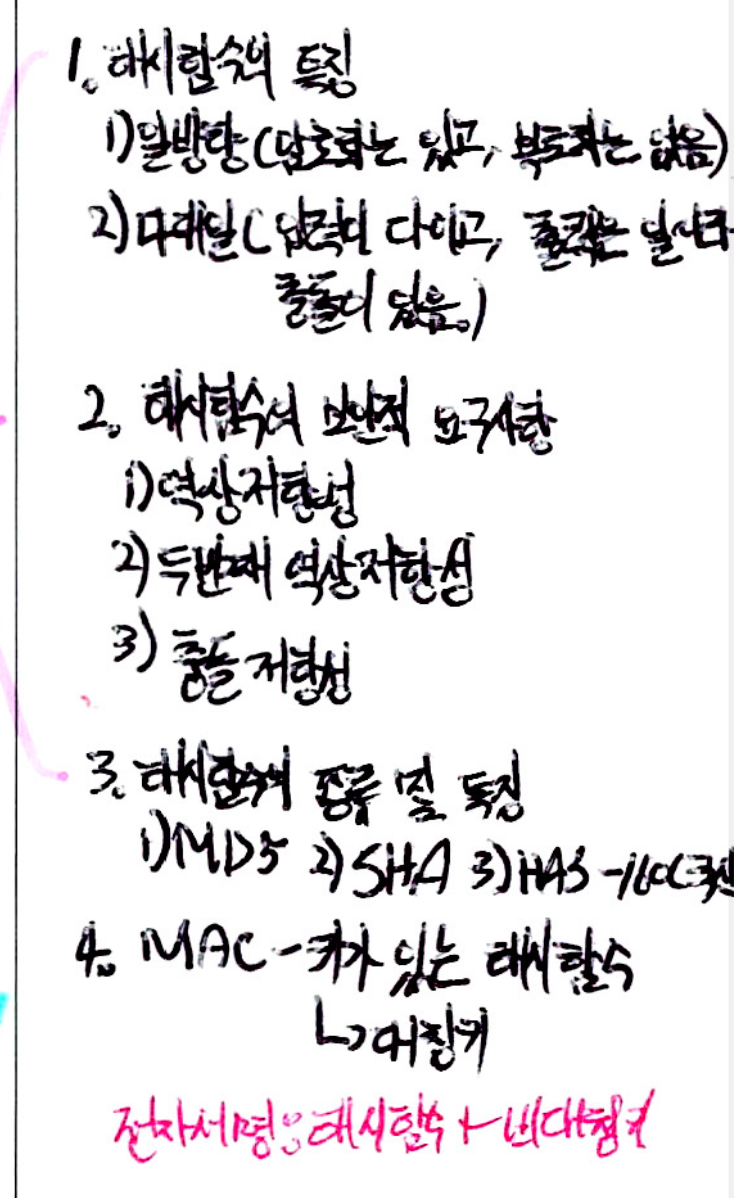 1. 해시함수의 특징
1) 일방향 (암호화는 있고, 복호화는 없음)
2) 다대일 ( 입력이 다이고, 출력은 일이라
충돌이 있음.)
2. 해시함수의 보안적 요구사항
1) 역상저항성
2) 두번째 역상저항성
3) 충돌 저항성
3. 해시함수의 종류 및 특징
1) MD5 2) SHA 3) HAS-160(국산
4. MAC - 키가 있는 해시함수
↳ 대칭키
전자서명 : 해시함수 + 비대칭키